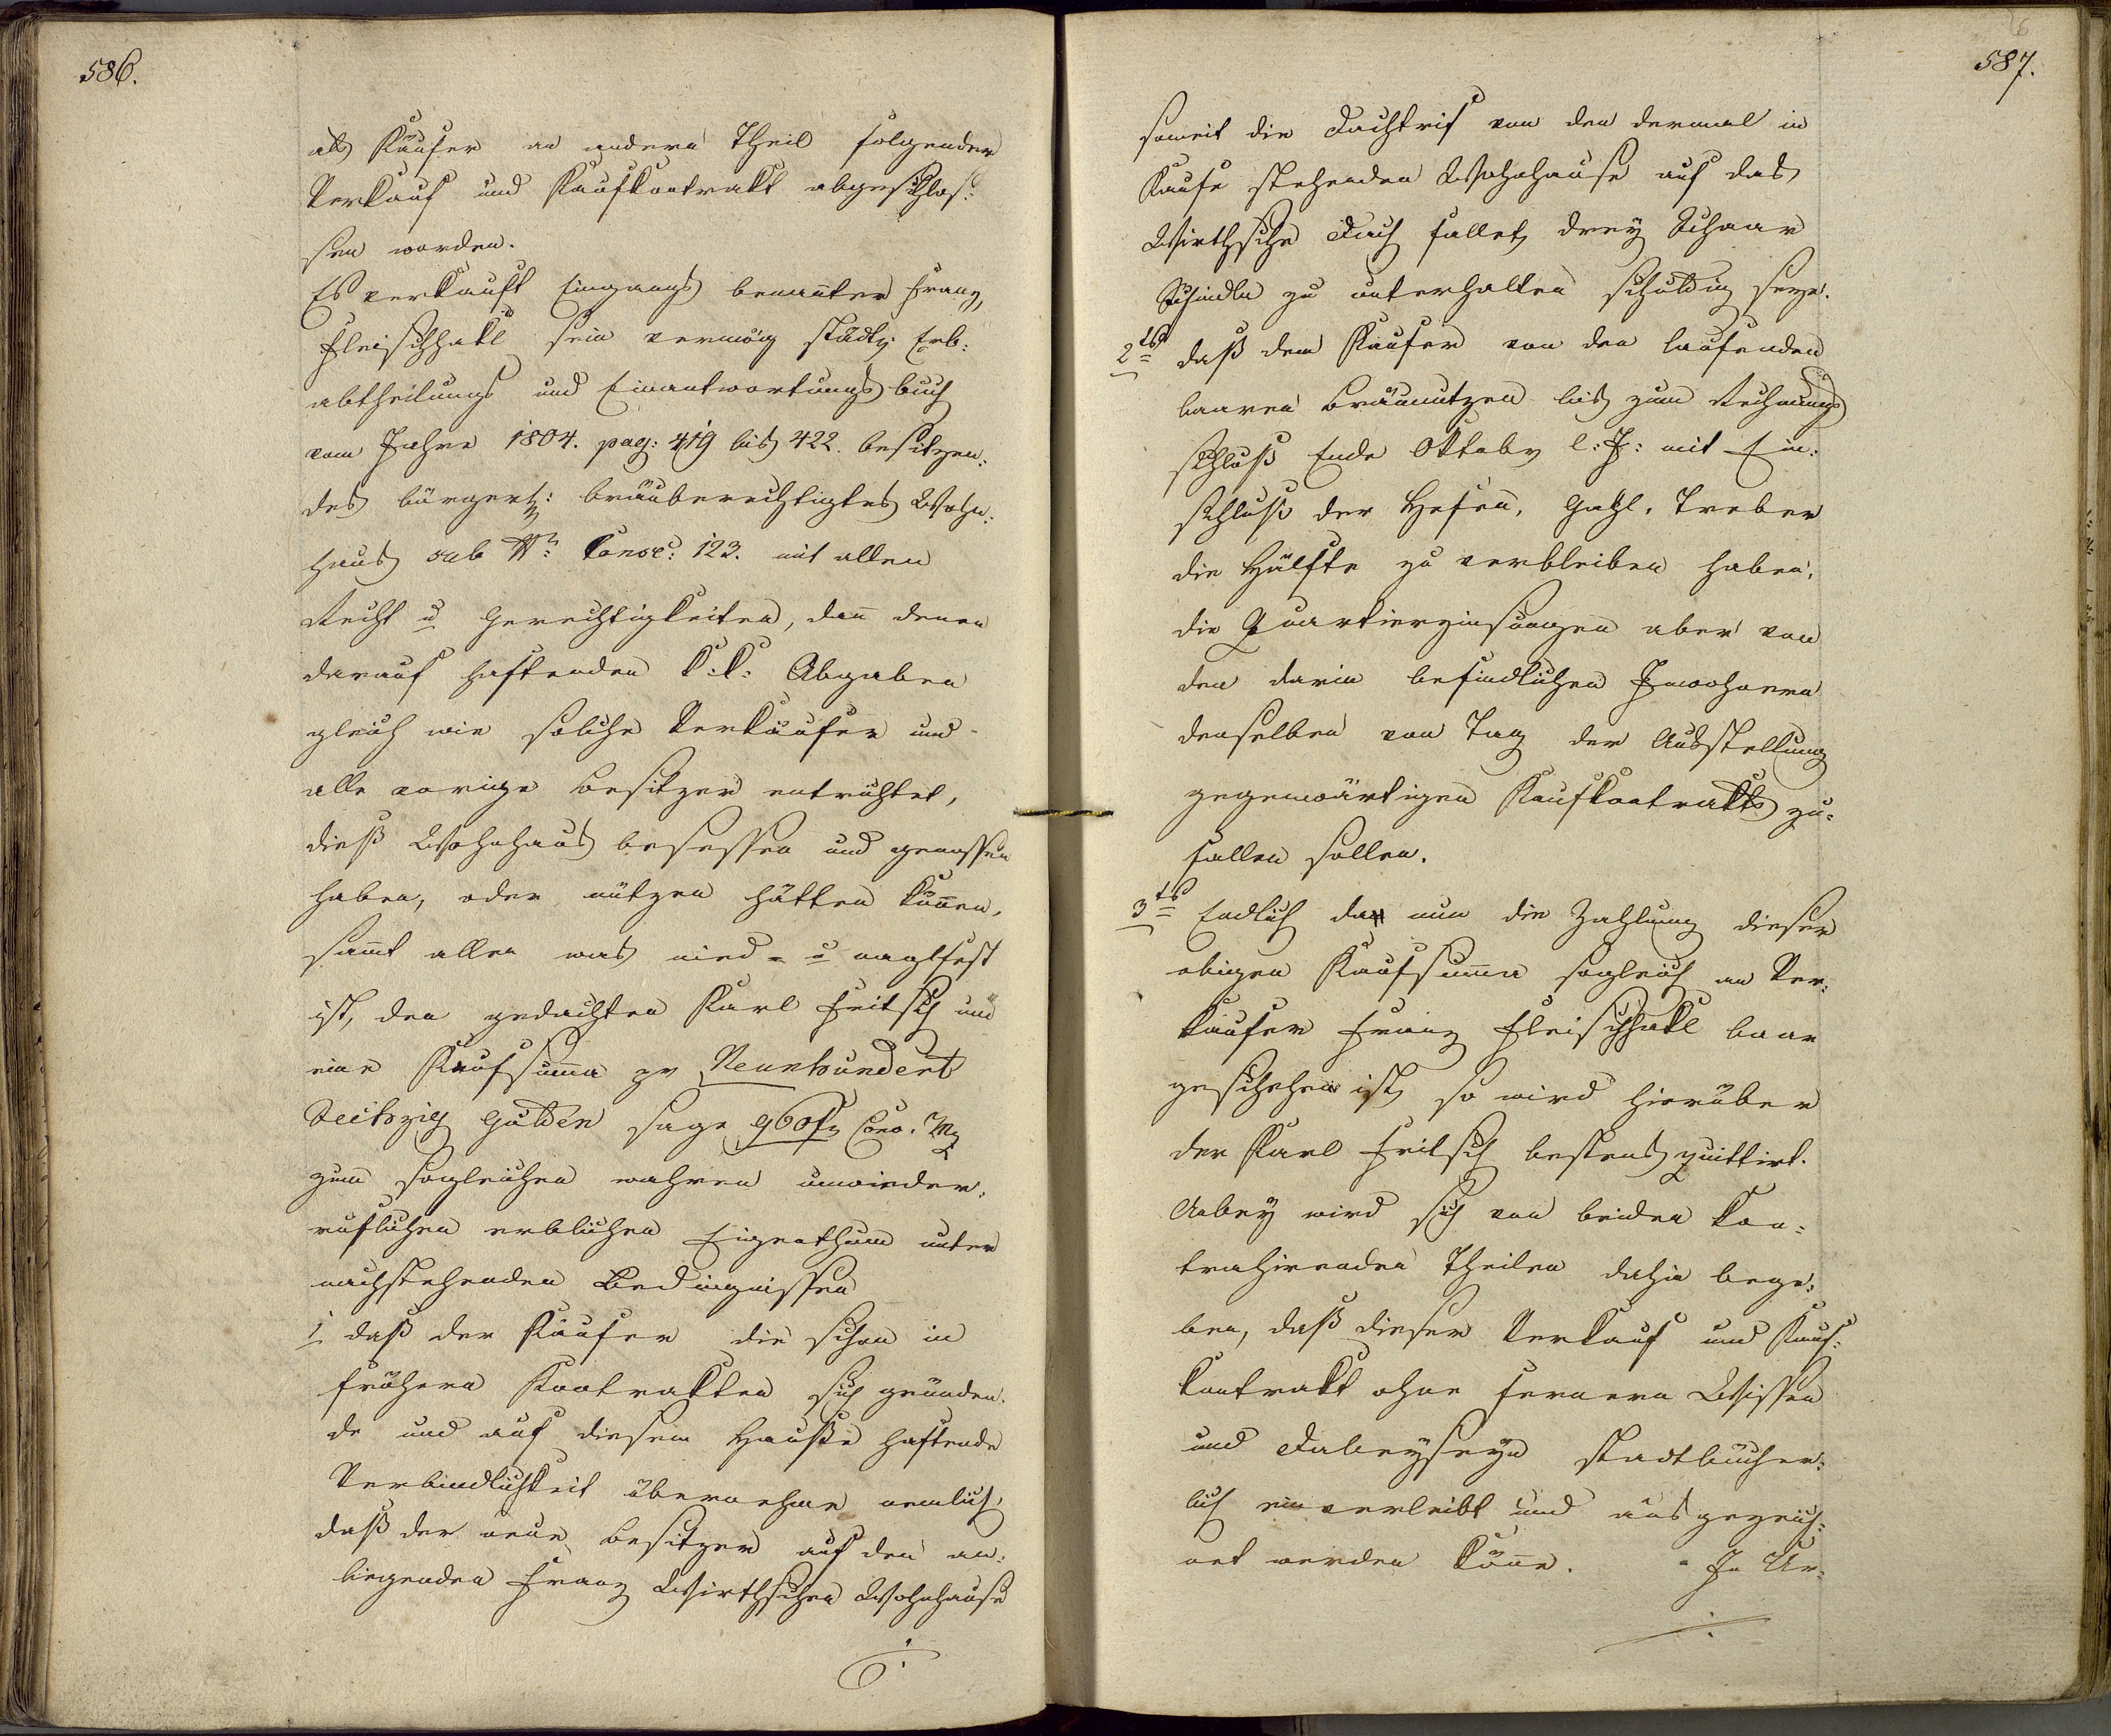 586.
als Käufer an andern Theil folgender
Verkauf und Kaufkontrakt abgeschlos:
sen worden.
Es verkauft Eingangs benanter Franz
Fleischhakl sein vermög städty Erb:
abtheilungs und Einantwortungs buch
vom Jahre 1804. pag: 419 bis 422. besitzen:
des bürgerl: bräuberechtigtes Wohn:
haus sub Nr: Consc: 123. mit allen
Recht u Gerechtigkeiten, dan denen
darauf haftenden k: k: Abgaben
gleich wie solche Verkäufer und
alle vorige Besitzer entrichtet,
dieß Wohnhaus besessen und genossen
haben, oder nützen hätten könen,
samt allen was nied- u naglfest
ist, den gedachten Karl Fritsch um
eine Kaufsuma zu Neunhundert
Sechszig Gulden sage 960 f Conv. Mz
zum sogleichen wahren unwieder:
ruflichen erblichen Eigenthum unter
nachstehenden Bedingnissen
1 daß der Käufer die schon in
frühern Kontrakten sich gründen:
de und auf diesem Hauße haftende
Verbindlichkeit übernehme nemlich,
daß der neue Besitzer auf den an:
liegenden Franz Wirthschen Wohnhause
587.
soweit die Dachtrif von den dermal in
Kaufe stehenden Wohnhause auf das
Wirthsche Dach fallet, drey Schaar
Schindln zu unterhalten schuldig seye.
2tens daß dem Käufer von den laufenden
baaren Bräunutzen bis zum Rechnungs
schluß Ende Oktobr l: J: mit Ein:
schluß der Hefen, Gahl, Treber
die Hälfte zu verbleiben haben,
die Quartierzinsungen aber von
den darin befindlichen Inwohnern
denselben von Tag der Ausstellung
gegenwärtigen Kaufkontrakts zu:
fallen sollen.
3tens Endlich da nun die Zahlung dieser
obigen Kaufsuma sogleich an Ver:
käufer Franz Fleischhakl baar
geschehen ist, so wird hierüber
der Karl Fritsch bestens quittirt.
Anbey wird sich von beiden kon:
trahirenden Theilen dahin bege:
ben, daß dieser Verkauf und Kauf:
kontrakt ohne fernern Wissen
und Dabeyseyn stadtbücher:
lich einverleibt und ausgezeich:
net werden köne. In Ur: